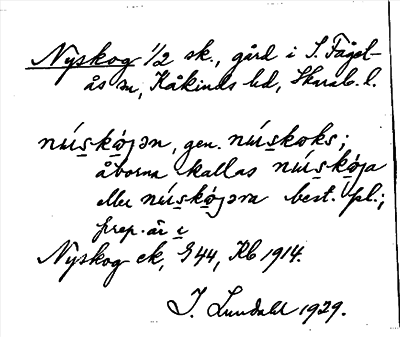 Nyskog 1/2 sk., gård i S. Fåget-
ås sn, Kåkinds hd, Skarab. l.
núskója̱n, gen. núskoks;
åborna kallas núskója
eller núskójəna best. pl.;
prep. är i
Nyskog ek, G44, Rb 1914.
J. Lundahl 1929.